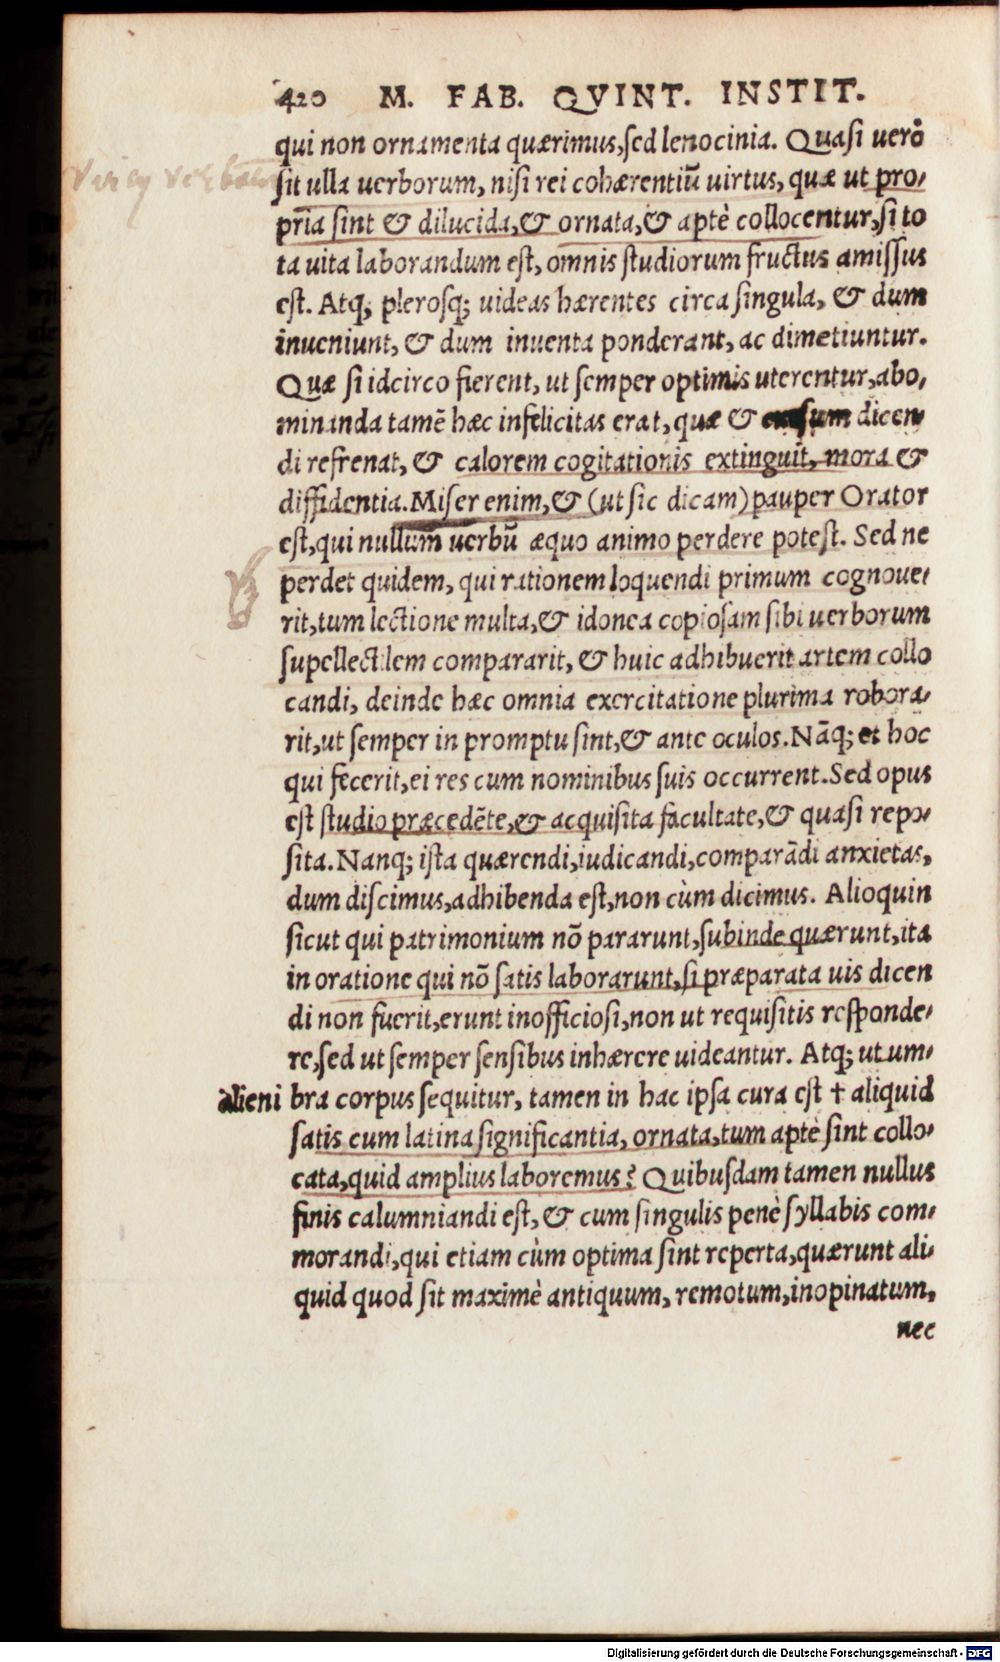 420 M. FAB. QVINT. INSTIT.
qui non ornamenta quærimus, sed lenocinia. Quasi uerò
sit ulla uerborum, nisi rei cohærentiũ uirtus, quæ ut pro-
pria sint & dilucida, & ornata, & aptè collocentur, si to
ta uita laborandum est, omnis studiorum fructus amissus
est. Atq; plerosq; uideas hærentes circa singula, & dum
inueniunt, & dum inuenta ponderant, ac dimetiuntur.
Quæ si idcirco fierent, ut semper optimis uterentur, abo-
minanda tamẽ hæc infelicitas erat, quæ & cursum dicen
di refrenat, & calorem cogitationis extinguit, mora &
diffidentia. Miser enim, & (ut sic dicam) pauper Orator
est, qui nullum uerbũ æquo animo perdere potest. Sed ne
perdet quidem, qui rationem loquendi primum cognoue-
rit, tum lectione multa, & idonea copiosam sibi uerborum
supellectilem compararit, & huic adhibuerit artem collo
candi, deinde hæc omnia exercitatione plurima robora-
rit, ut semper in promptu sint, & ante oculos. Nãq; et hoc
qui fecerit, ei res cum nominibus suis occurrent. Sed opus
est studio præcedẽte, & acquisita facultate, & quasi repo-
sita. Nanq; ista quærendi, iudicandi, comparãdi anxietas,
dum discimus, adhibenda est, non cùm dicimus. Alioquin
sicut qui patrimonium nõ pararunt, subinde quærunt, ita
in oratione qui nõ satis laborarunt, si præparata uis dicen
di non fuerit, erunt inofficiosi, non ut requisitis responde-
re, sed ut semper sensibus inhærere uideantur. Atq; ut um-
alieni bra corpus sequitur, tamen in hac ipsa cura est † aliquid
satis cum latina significantia, ornata, tum aptè sint collo-
cata, quid amplius laboremus? Quibusdam tamen nullus
finis calumniandi est, & cum singulis penè syllabis com-
morandi, qui etiam cùm optima sint reperta, quærunt ali-
quid quod sit maximè antiquum, remotum, inopinatum,
nec
Digitalisierung gefördert durch die Deutsche Forschungsgemeinschaft - DFG